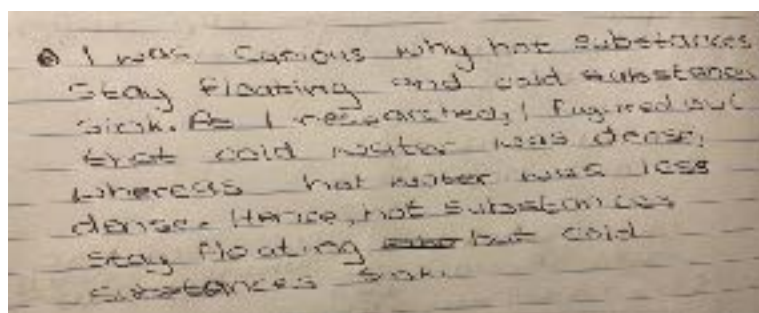 I was curious why hot substances
stay floating and cold substances
sink. As I researched, I fugured out
that cold water was dense,
whereas hot water was less
dense. Hence, hot substances
stay floating but cold
substances sink.